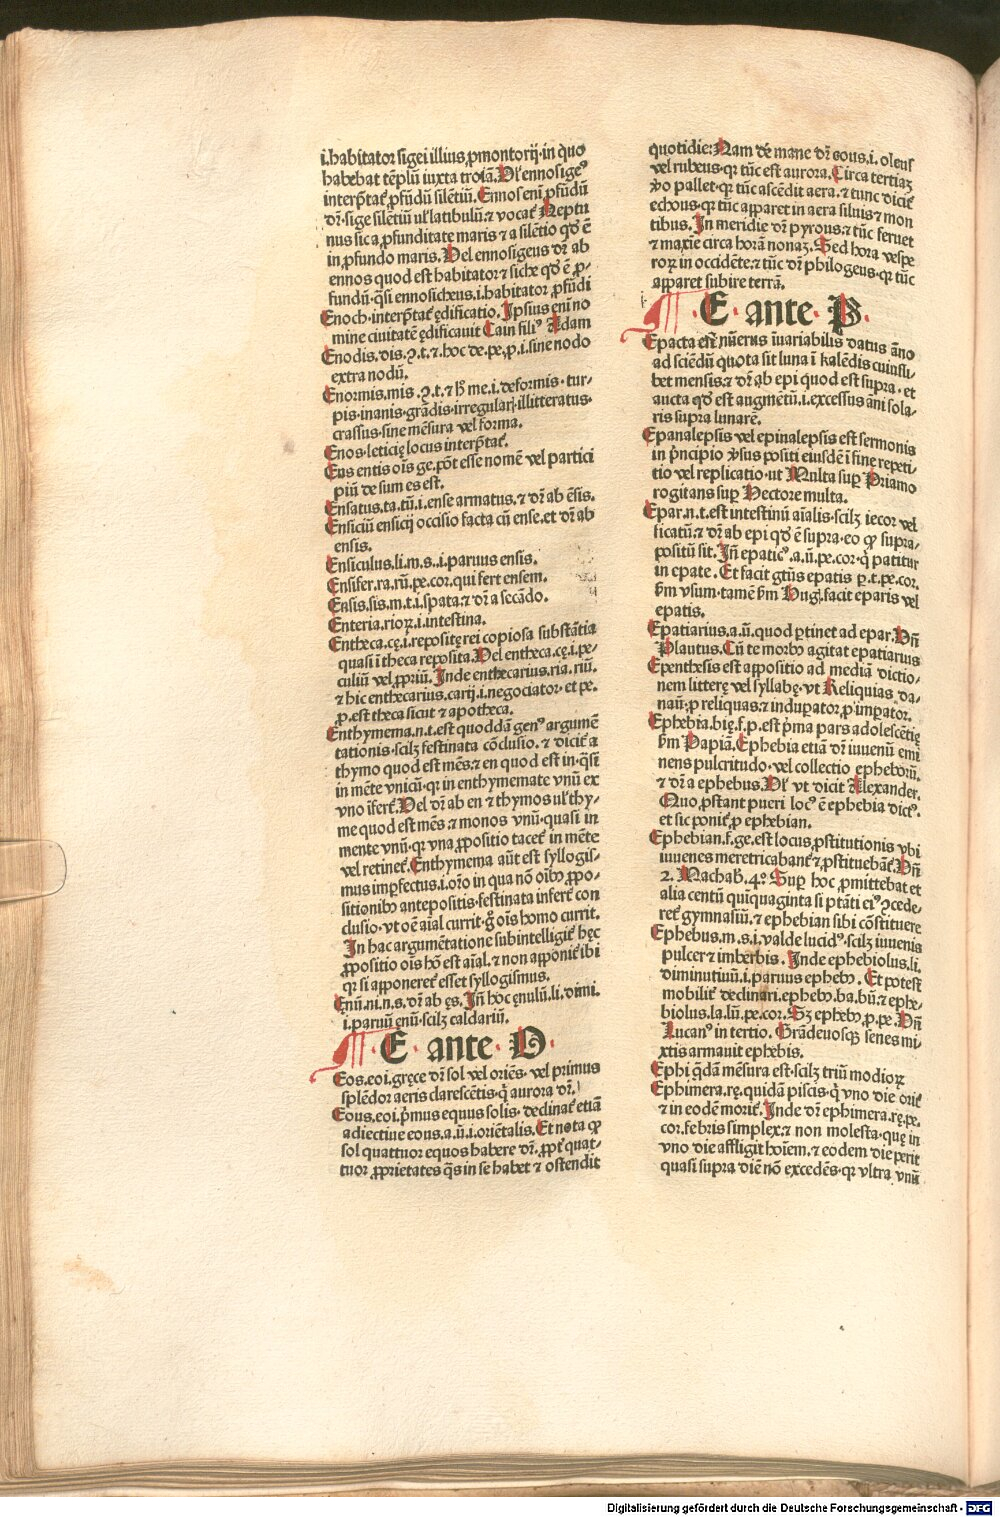 i. habitator sigei illius ꝓmontorij·in quo
habebat tēplū iuxta troiā. Vł ennosigeꝰ
interp̄tat᷑ ꝓfūdū silētiū. Ennos eni᷑ ꝓfūdū
dr̄·sige silētiū uł latibulū.⁊ vocat᷑ Neptu
nus sic a ꝓfunditate maris ⁊ a silētio qd̓ ē
in ꝓfundo maris. Vel ennosigeus dr̄ ab
ennos quod est habitator ⁊ siche qd̓ ē ꝓ-
fundū·q̄si ennosicheus.i.habitator ꝓfūdi
Enoch·interp̄tat᷑ ędificatio. Ipsius eni᷑ no
mine ciuitatē ędificauit Cain filiꝰ Adam
Enodis.dis.ꝯ.t.⁊ hoc de.pe.ꝓ.i.sine nodo
extra nodū.
Enormis.mis.ꝯ.t.⁊ h̄ me.i.deformis·tur-
pis·inanis·grādis·irregularꝭ·illitteratus·
crassus·sine mēsura vel forma.
Enos·leticię locus interp̄tat᷑.
Ens entis oīs ge.pōt esse nomē vel partici
piū de sum es est.
Ensatus.ta.tū.i.ense armatus.⁊ dr̄ ab ēsis.
Ensiciū ensicij occisio facta cū ense.et dr̄ ab
ensis.
Ensiculus.li.m.s..i.paruus ensis.
Ensifer.ra.rū.pe.cor.qui fert ensem.
Ensis.sis.m.t.i.spata.⁊ dr̄ a secādo.
Enteria.rioꝝ.i.intestina.
Entheca.cę.i.repositę rei copiosa substātia
quasi ī theca reposita. Vel entheca.cę.i.pe-
culiū vel ꝓpriū. Inde enthecarius.ria.riū.
⁊ hic enthecarius.carij.i.negociator·et pe.
ꝓ.est theca sicut ⁊ apotheca.
Enthymema.n.t.est quoddā genꝰ argumē
tationis·scilꝫ festinata cōclusio.⁊ dicit᷑ a
thymo quod est mēs.⁊ en quod est in·q̄si
in mēte vnicū·qꝛ in enthymemate vnū ex
vno īfert᷑. Vel dr̄ ab en ⁊ thymos uł thy-
me quod est mēs·⁊ monos vnū·quasi in
mente vnū·qꝛ vna ꝓpositio tacet᷑ in mēte
vel retinet᷑. Enthymema aūt est syllogis-
mus imꝑfectus.i.or̄o in qua nō oībꝰ ꝓpo-
sitionibꝰ antepositis·festinata infert᷑ con
clusio·vt oē aīal currit·g̊ oīs homo currit.
In hac argumētatione subintelligit᷑ hęc
ꝓpositio oīs hō est aīal.⁊ non apponit᷑ ibi
qꝛ si apponeret᷑ esset syllogismus.
Enū.ni.n.s.dr̄ ab ęs. In̄ hoc ęnulū.li.dimi.
i.paruū ęnū·scilꝫ caldariū.
E· ante· O·
Eos.eoi.gręce dr̄ sol vel oriēs· vel primus
splēdor aeris clarescētis·q̇ aurora dr̄.
Eous.eoi.p̄mus equus solis· declinat᷑ etiā
adiectiue eous.a.ū.i.oriētalis. Et nota ꝙ
sol quattuor equos habere dr̄·ꝓpt᷑ quat-
tuor ꝓprietates q̄s in se habet ⁊ ostendit
quotidie: Nam de mane dr̄ eous.i.oleus
vel rubeus·qꝛ tūc est aurora. Circa tertiaꝫ
ꝟo pallet·qꝛ tūc ascēdit aera.⁊ tunc dicit᷑
echous·qꝛ tūc apparet in aera siluis ⁊ mon
tibus. In meridie dr̄ pyrous·⁊ tūc feruet
⁊ maxīe circa horā nonaꝫ. Sed hora vespe
roꝝ in occidēte·⁊ tūc dr̄ philogeus·qꝛ tūc
apparet subire terrā.
E· ante· P·
Epacta est nūerus īuariabilis datus āno
ad sciēdū quota sit luna ī kalēdis cuiusli-
bet mensis.⁊ dr̄ ab epi quod est supra· et
aucta qd̓ est augmētū.i.excessus āni sola-
ris supra lunarē.
Epanalepsis vel epinalepsis est sermonis
in p̄ncipio ꝟsus positi eiusdē ī fine repeti-
tio vel replicatio·vt Multa suꝑ Priamo
rogitans suꝑ Hectore multa.
Epar.n.t.est intestinū aīalis·scilꝫ iecor vel
ficatū.⁊ dr̄ ab epi qd̓ ē supra·eo ꝙ supra-
positū sit. In̄ epaticꝰ.a.ū.pe.cor·q̇ patitur
in epate. Et facit gt̄ūs epatis ꝑ.t.pe.cor.
ẜm vsum·tamē ẜm Hug̉.facit eparis vel
epatis.
Epatiarius.a.ū.quod ꝑtinet ad epar. Vn̄
Plautus. Cū te morbo agitat epatiarius
Epenthesis est appositio ad mediā dictio-
nem litterę vel syllabę·vt Reliquias da-
naū·ꝓ reliquas.⁊ induꝑator·ꝓ imꝑator.
Ephebia.bię.f.p.est p̄ma pars adolescētię
ẜm Papiā. Ephebia etiā dr̄ iuuenū emi
nens pulcritudo·vel collectio epheborū.
⁊ dr̄ a ephebus. Vł vt dicit Alexander.
Quo ꝓstant pueri locꝰ ē ephebia dictꝰ.
et sic ponit᷑ ꝓ ephebian.
Ephebian.f.ge.est locus ꝓstitutionis vbi
iuuenes meretricabant᷑ ⁊ ꝓstituebāt᷑. Vn̄
2. Machab̓. 4.° Suꝑ hoc ꝓmittebat et
alia centū quiquaginta si p̄tāti eiꝰ ꝯcede-
ret᷑ gymnasiū.⁊ ephebian sibi cōstituere
Ephebus.m.s.i.valde lucidꝰ·scilꝫ iuuenis
pulcer ⁊ imberbis. Inde ephebiolus.li.
diminutiuū.i.paruus ephebꝰ. Et potest
mobilit᷑ declinari.ephebꝰ.ba.bū.⁊ ephe-
biolus.la.lū.pe.cor. Sꝫ ephebꝰ.ꝓ.pe. Vn̄
Lucanꝰ in tertio. Grādeuosqꝫ senes mi-
xtis armauit ephebis.
Ephi q̄dā mēsura est·scilꝫ triū modioꝝ
Ephimera.rę.quidā piscis·q̇ vno die orit᷑
⁊ in eodē morit᷑. Inde dr̄ ephimera.rę.pe.
cor.febris simplex.⁊ non molesta·quę in
vno die affligit hoīem.⁊ eodem die perit
quasi supra diē nō excedēs·qꝛ vltra vnū
Digitalisierung gefördert durch die Deutsche Forschungsgemeinschaft - DFG